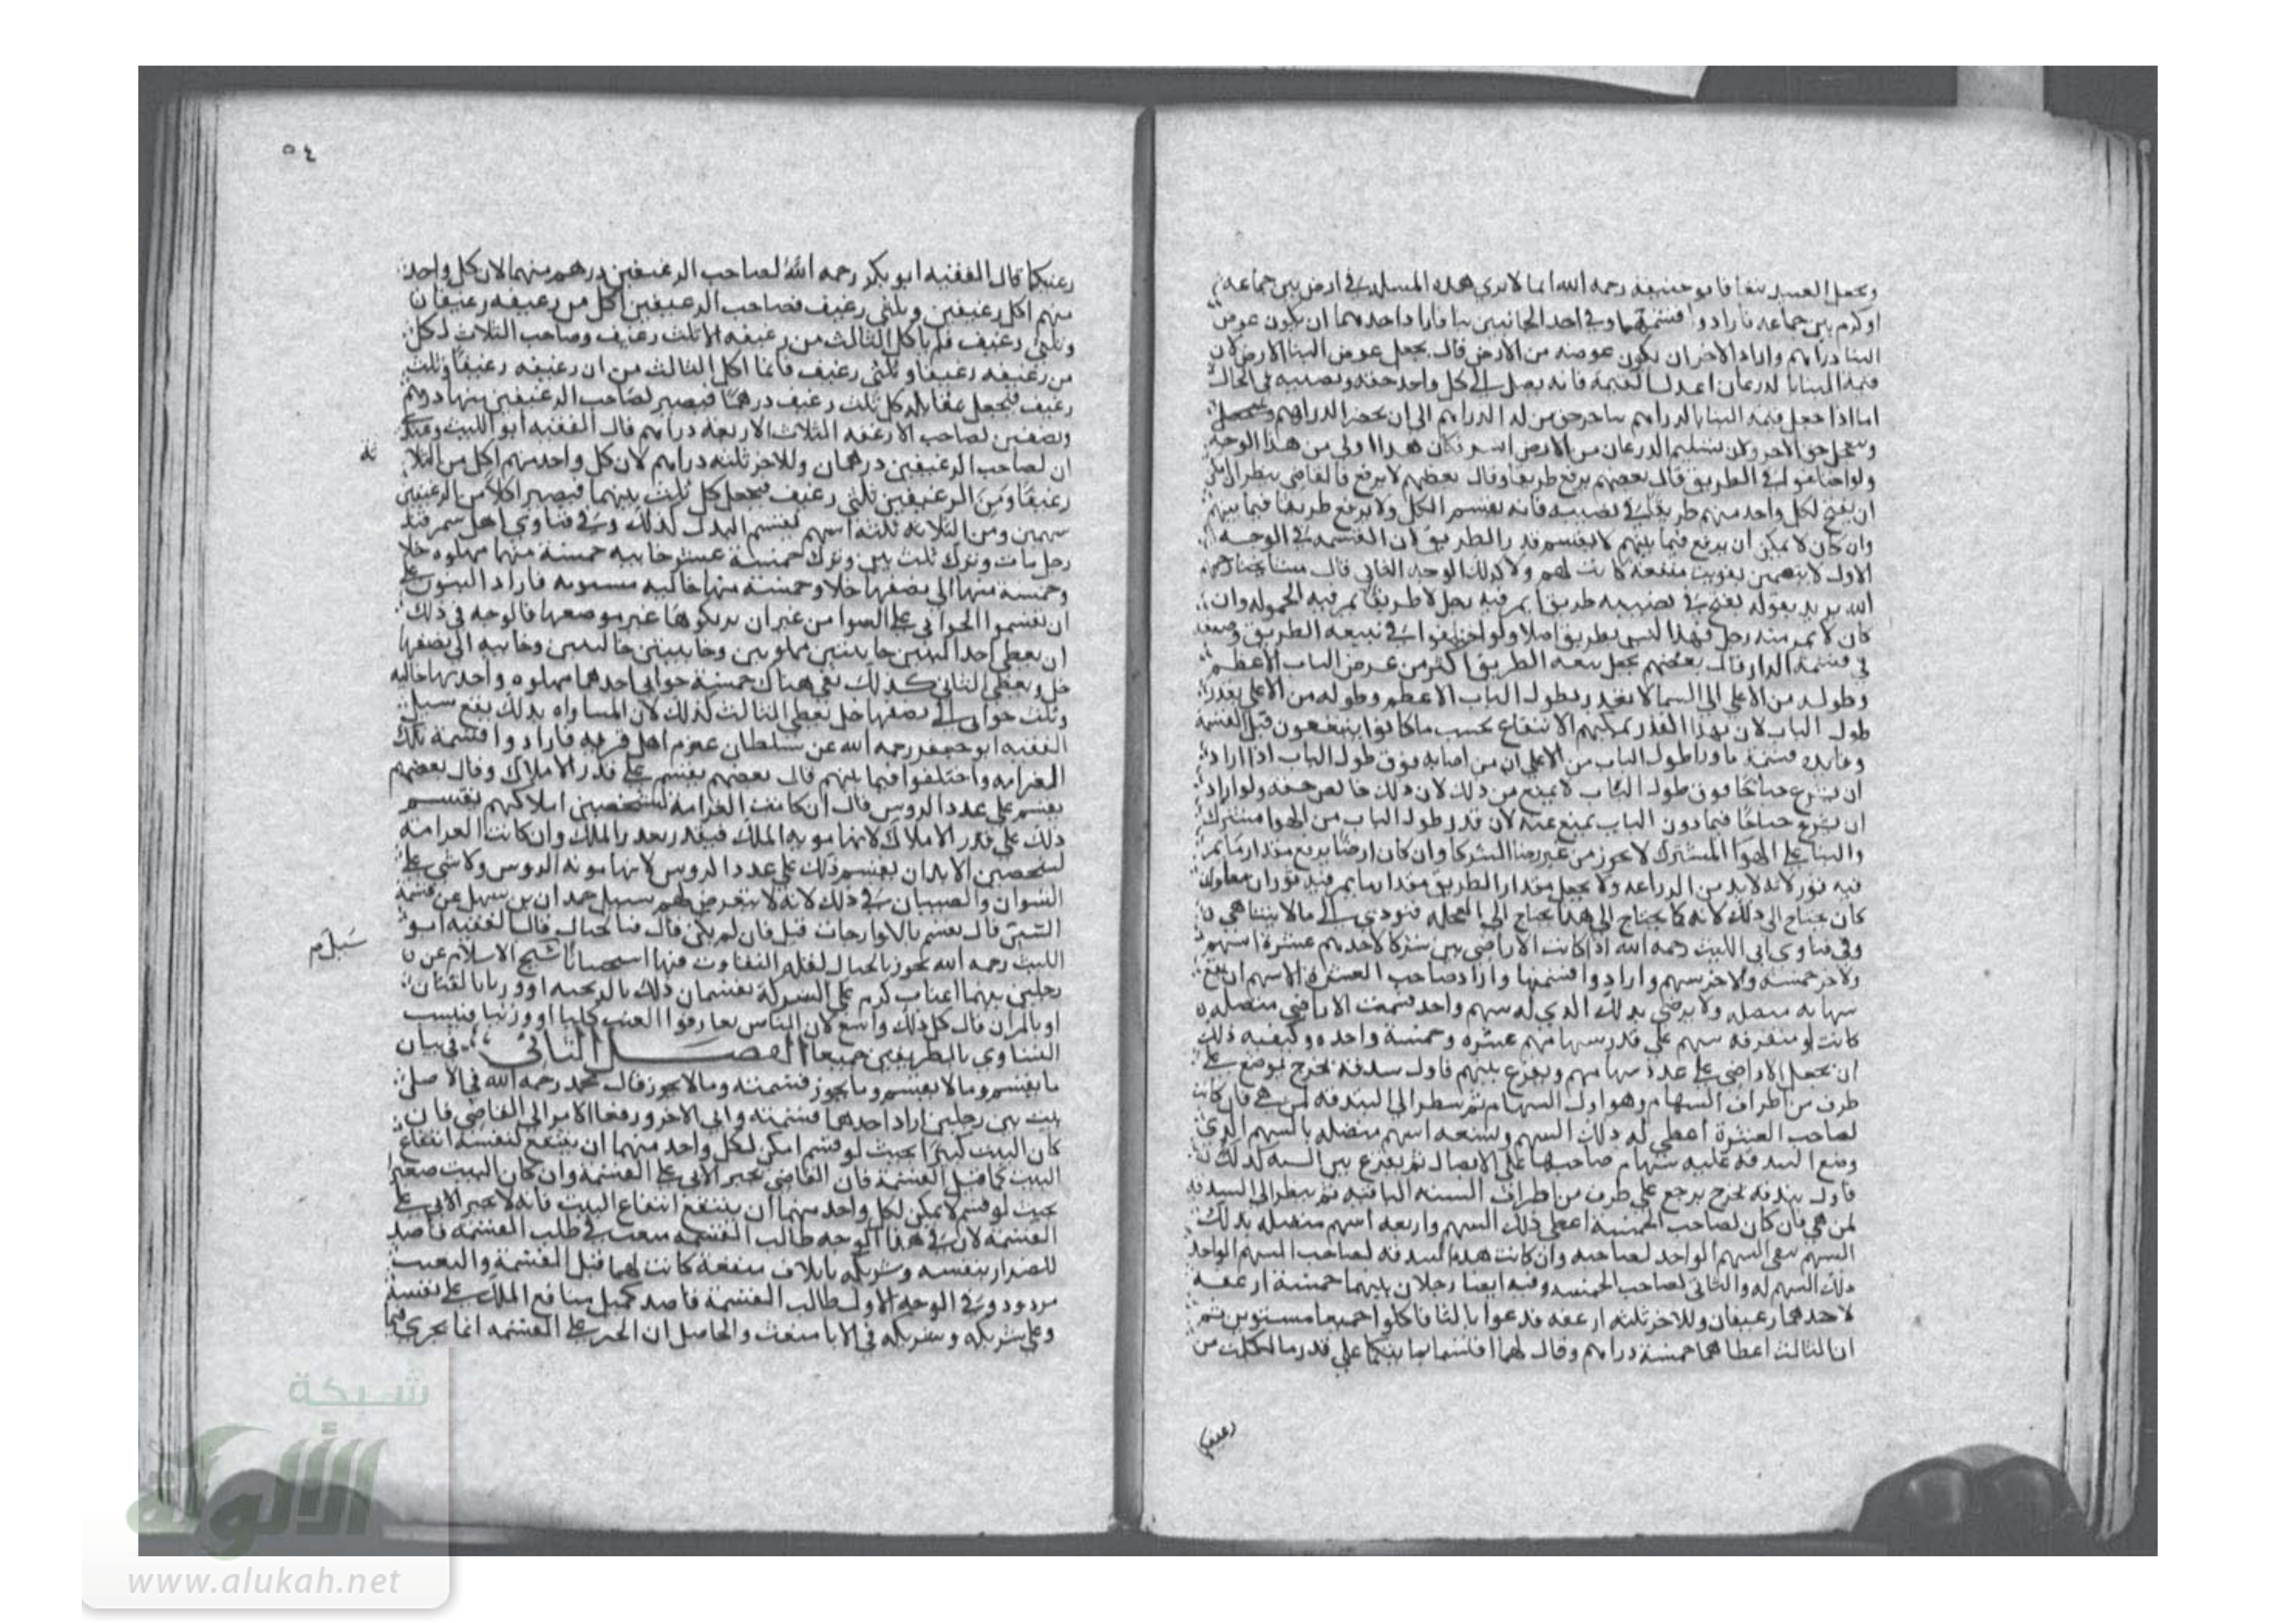 ويجعل العبيد تبعا فابو حنيفة رحمه الله انما لا يري هذه المسله في ارض بين جماعه
او كرم بين جماعه فارادوا قسمتهما وفي احد الجانبين بنا فاراد احدهما ان يكون عوض
البنا دراهم واراد الاخر ان يكون عوضه من الارض قال يجعل عوض البنا الارض لان
قيمة البنا بالدرعان اعدل القيمة فانه يصل الي كل واحد حقه ونصيبه في الحال
اما اذا جعل قيمة البنا بالدراهم يتاخر حق من له الدراهم الي ان يحضر الدراهم
حق الاخر ولان تسليم الدرعان من الارض ايسر فكان هذا اولي من هذا الوجه
ولو اختلفوا في الطريق قال بعضهم يرفع طريقا وقال بعضهم لا يرفع فالقاضي ينظر ان امكن
ان يفتح لكل واحد منهم طريقا في نصيبه فانه يقسم الكل ولا يرفع طريقا فيما بينهم
وان كان لا يمكن ان يرفع فيما بينهم لا يقسم قدر الطريق لان القسمه في الوجه
الاول لا يتضمن تفويت منفعة كانت لهم ولا كذلك الوجه الثاني قال مشايخنا رحمهم
الله يريد بقوله يفتح في نصيبه طريقا يمر فيه رجل لا طريقا تمر فيه الحموله وان
كان لا يمر منه رجل فهذا ليس بطريق اصلا ولو اختلفوا في سعه الطريق وضيقه
في قسمة الدار قال بعضهم يجعل سعه الطريق اكثر من عرض الباب الاعظم
وطوله من الاعلي الي السما لا بقدر طول الباب الاعظم وطوله من الاعلي بقدر
طول الباب لان بهذا القدر يمكنهم الانتفاع بحسب ما كانوا ينتفعون قبل القسمة
وفايدة قسمة ما ورا طول الباب من الاعلي ان من اصابه فوق طول الباب اذا اراد
ان يشرع جناحا فوق طول الباب لا يمنع من ذلك لان ذلك خالص حقه ولو اراد
ان يشرع جناحا فيما دون الباب يمنع عنه لان قدر طول الباب من الهوا مشترك
والبنا علي الهوا المشترك لا يجوز من غير رضا الشركا وان كان ارضا يرفع مقدار ما يمر
فيه ثور لانه لا بد من الزراعه ولا يجعل مقدار الطريق مقدار ما يمر فيه ثوران معا وان
كان يحتاج الي ذلك لانه كما يحتاج الي هذا يحتاج الي العجله فتودي الي ما لا يتناهي
وفي فتاوي ابي الليث رحمه الله اذا كانت الاراضي بين شركا لاحدهم عشرة اسهم
ولاخر خمسة ولاخر سهم وارادوا قسمتها واراد صاحب العشرة الاسهم ان يقع
سهامه متصله ولا يرضي بذلك الذي له سهم واحد قسمت الاراضي متصله
كانت او متفرقه سهم علي قدر سهامهم عشره وخمسة واحده وكيفيه ذلك
ان يجعل الاراضي علي عدد سهامهم ويقرع بينهم فاول بندقه تخرج توضع علي
طرف من اطراف السهام وهو اول السهام ثم ينظر الي البندقه لمن هي فان كانت
لصاحب العشرة اعطي له ذلك السهم وتسعه اسهم متصله بالسهم الذي
وضع البندقه عليه سهام صاحبها علي الاتصال ثم يقرع بين السته كذلك
فاول بندقه تخرج يرجع علي طرف من اطراف السته الباقيه ثم ينظر الي البندقه
لمن هي فان كان لصاحب الخمسة اعطي ذلك السهم واربعه اسهم متصله بذلك
السهم بقي السهم الواحد لصاحبه وان كانت هذه البندقه لصاحب السهم الواحد
ذلك السهم له والثاني لصاحب الخمسه وفيه ايضا رجلان بينهما خمسة ارغفه
لاحدهما رغيفان وللاخر ثلثه ارغفه فدعوا ثالثا فاكلوا جميعا مستوين ثم
ان الثالث اعطاهما خمسة دراهم وقال لهما اقتسماها بينكما علي قدر ما اكلت من
رغيفكما
٥٤
رغيفكما قال الفقيه ابو بكر رحمه الله لصاحب الرغيفين درهم منهما لان كل واحد
منهم اكل رغيفين وثلثي رغيف فصاحب الرغيفين اكل من رغيفه رغيفان
وثلثي رغيف فلم ياكل الثالث من رغيفه الا ثلث رغيف وصاحب الثلاث لكل
من رغيفه رغيفا وثلثي رغيف فانما اكل الثالث من ان رغيفه رغيفا وثلث
رغيف فيجعل مقابله كل ثلث رغيف درهما فيصير لصاحب الرغيفين منها درهم
ونصفين لصاحب الارغفه الثلاث الاربعه دراهم قال الفقيه ابو الليث وعندي
ان لصاحب الرغيفين درهمان وللاخر ثلثه دراهم لان كل واحد منهم اكل من الثلا
ثه
رغيفا ومن الرغيفين ثلثي رغيف فيجعل كل ثلث بينهما فيصير اكلا من الرغيفين
سهمين ومن الثلاثه ثلثه اسهم يقسم البدل كذلك وفي فتاوي اهل سمرقند
رجل مات وترك ثلث بنين وترك خمسة عشر خابيه خمسة منها مملوه خلا
وخمسة منها الي نصفها خلا وخمسة منها خاليه مستويه فاراد البنون
ان يقسموا الخوابي علي السوا من غير ان يزيلوها عن موضعها فالوجه في ذلك
ان يعطي احد البنين خابيتين مملوتين وخابيتين خاليتين وخابيه الي نصفها
خل ويعطي الثاني كذلك بقي هناك خمسة خوابي احدهما مملوه واحدها خاليه
وثلث خوابي الي نصفها خل يعطي الثالث كذلك لان المساواه بذلك يقع سيل
الفقيه ابو جعفر رحمه الله عن سلطان غرم اهل قريه فارادوا قسمة تلك
الغرامه واختلفوا فيما بينهم قال بعضهم يقسم علي قدر الاملاك وقال بعضهم
يقسم علي عدد الروس قال ان كانت الغرامة لتحصين املاكهم يقسم
ذلك علي قدر الاملاك لانها مونه الملك فيقدر بقدر الملك وان كانت الغرامة
لتحصين الابدان يقسم ذلك علي عدد الروس لانها مونه الروس ولا شي علي
النسوان والصبيان في ذلك لانه لا يتعرض لهم سيل حمدان بن سهل عن قسمة
التبن قال يقسم بالاوارجات قيل فان لم يكن قال فبالحبال قال الفقيه ابو
الليث رحمه الله يجوز بالحبال لقله التفاوت فيها استحسانا شيخ الاسلام عن
سيل م
رجلين بينهما اعناب كرم علي الشركة يقسمان ذلك بالرحبه او وزنا بالقبان
او بالمزان قال كل ذلك واسع لان الناس تعارفوا العنب كليا او وزنيا فيثبت
التساوي بالطريقين جميعا الفصل الثاني في بيان
ما يقسم وما لا يقسم وما يجوز قسمته وما لا يجوز قال محمد رحمه الله في الاصل
بيت بين رجلين اراد احدهما قسمته وابي الاخر ورفعا الامر الي القاضي فان
كان البيت كبيرا بحيث لو قسم امكن لكل واحد منهما ان ينتفع لنفسه انتفاع
البيت كما قبل القسمة فان القاضي يجبر الابي علي القسمة وان كان البيت صغيرا
بحيث لو قسم لا يمكن لكل واحد منهما ان ينتفع انتفاع البيت فانه لا يجبر الابي علي
القسمة لان في هذا الوجه طالب القسمه متعنت في طلب القسمة قاصد
للضرار بنفسه وشريكه باتلاف منفعة كانت لهما قبل القسمة والتعنت
مردود وفي الوجه الاول طالب القسمة قاصد تكميل منافع الملك علي نفسه
وعلي شريكه وشريكه في الابا متعنت والحاصل ان الجبر علي القسمه انما يجري فيما
شبكة
الألوكة
www.alukah.net